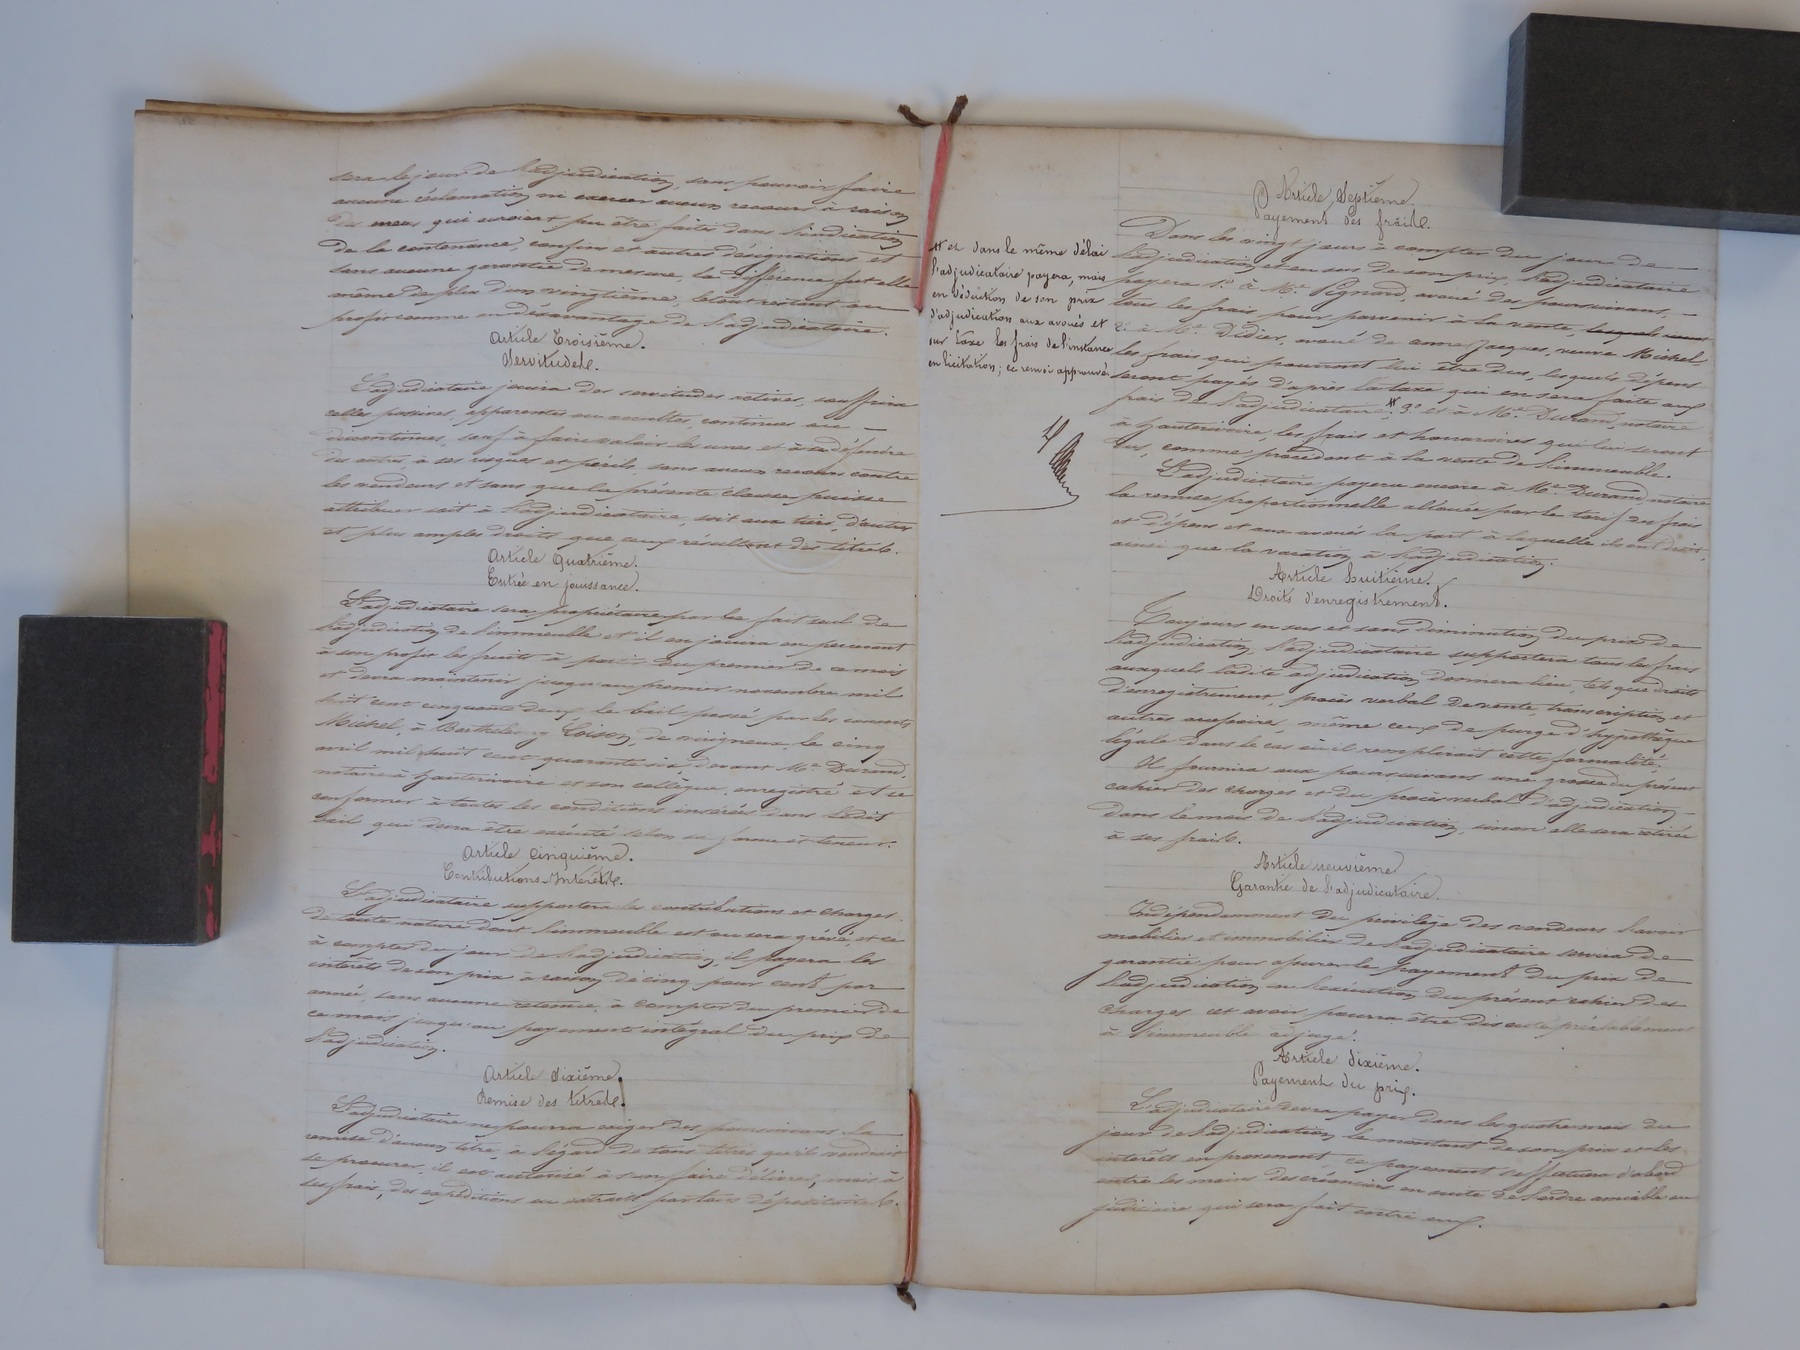 sera le jour de l'adjudication, sans pouvoir faire
aucune réclamation ni exercer aucun recours à raison
des erreurs qui auraient pu être faites dans l'indication
de la contenance, confins et autres désignations et
sans aucune garantie de mesure, la différence fut elle
même de plus d'un vingtième, le tout restant au
profit comme au désavantage de l'adjudicataire.
Article Troisième.
Servitudes.
L'adjudicataire jouira des servitudes actives, souffrira
celles passives, apparentes ou occultes, continues ou
discontinues, sauf à faire valoir les unes et à se défendre
des autres, à ses risques et périls, sans aucun recours contre
les vendeurs et sans que la présente clause puisse
attribuer soit à l'adjudicataire, soit aux tiers, d'autres
et plus amples droits, que ceux résultant des titres.
Article Quatrième.
Entrée en jouissance.
L'adjudicataire sera propriétaire par le fait seul de
l'adjudication de l'immeuble et il en jouira en percevant
à son profit les fruits à partir du premier de ce mois
et devra maintenir jusqu'au premier novembre mil
huit cent cinquante deux le bail passé par les consorts
Michel, à Barthelemy Loison, de le cinq
avril mil huit cent quarante six devant Me. Durand,
notaire à hauterivoire et son collègue, enregistré et se
conformer à toutes les conditions insérées dans ledit
bail qui devra être exécuté selon sa forme et teneur.
Article Cinquième.
Contributions-Intérêts.
L'adjudicataire supportera les contributions et charges
de toute nature dont l'immeuble est ou sera grévé, et ce
à compter du jour de l'adjudication, il payera les
intérêts de son prix à raison de cinq pour cent par
année, sans aucune retenue, à compter du premier de
ce mois jusqu'au payement intégral du prix de
l'adjudication.
Article Sixième.
Remise des titres.
L'adjudicataire ne pourra exiger des poursuivans la
remise d'aucun titre, à l'égard de tous titres qu'il voudrait
se procurer, il est autorisé à s'en faire délivrer, mais à
ses frais, des expéditions ou extraits par leurs dépositaires.
Article Septième.
Payement des frais.
Dans les vingt jours à compter du jour de
l'adjudication et en sus de son prix, l'adjudicataire
payera 1.° à Me. Pignard, avoué des poursuivans,
tous les frais pour parvenir à la vente,
2.° à Me. Didier, avoué de anne Jacques, veuve Michel,
les frais qui pourront lui être dus, lesquels dépens
seront payés d'après la taxe qui en sera faite aux
frais de l'adjudicataire; # 3.° et à Me. Durand, notaire
à hauterivoire, les frais et honoraires qui lui seront
dus, comme procédant à la vente de l'immeuble.
L'adjudicataire payera encore à Me. Durand, notaire
la remise proportionnelle allouée par le tarif en frais
et dépens et aux avoués la part à laquelle ils ont droit,
ainsi que la vacation à l'adjudication.
# et dans le même délai
l'adjudicataire payera, mais
en déduction de son prix
d'adjudication aux avoués et
sur taxe les frais de l'instance
en licitation; ce renvoi approuvé
Article huitième.
Droits d'enregistrement.
Toujours en sus et sans diminution du prix de
l'adjudication, l'adjudicataire supportera tous les frais
auxquels ladite adjudication donnera lieu, tels que droits
d'enregistrement, procès verbal de vente, transcription et
autres accessoires, même ceux de purge d'hypothèque
légale dans le cas où il remplirait cette formalité.
Il fournira aux poursuivans une grosse du présent
cahier des charges et du procès verbal d'adjudication
dans le mois de l'adjudication, sinon elle sera retirée
à ses frais.
Article neuvième
Garantie de l'adjudicataire.
Indépendamment du privilège des vendeurs l'avoir
mobilier et immobilier de l'adjudicataire servira de
garantie pour assurer le payement du prix de
l'adjudication et l'exécution du présent cahier des
charges cet avoir pourra être discuté préalablement
à l'immeuble adjugé.
Article dixième.
Payement du prix.
L'adjudicataire devra payer dans les quatre mois du
jour de l'adjudication le montant de son prix et les
intérêts en provenant, ce payement s'effectuera d'abord
entre les mains des créanciers en suite de l'ordre amiable ou
judiciaire qui sera fait entre eux.